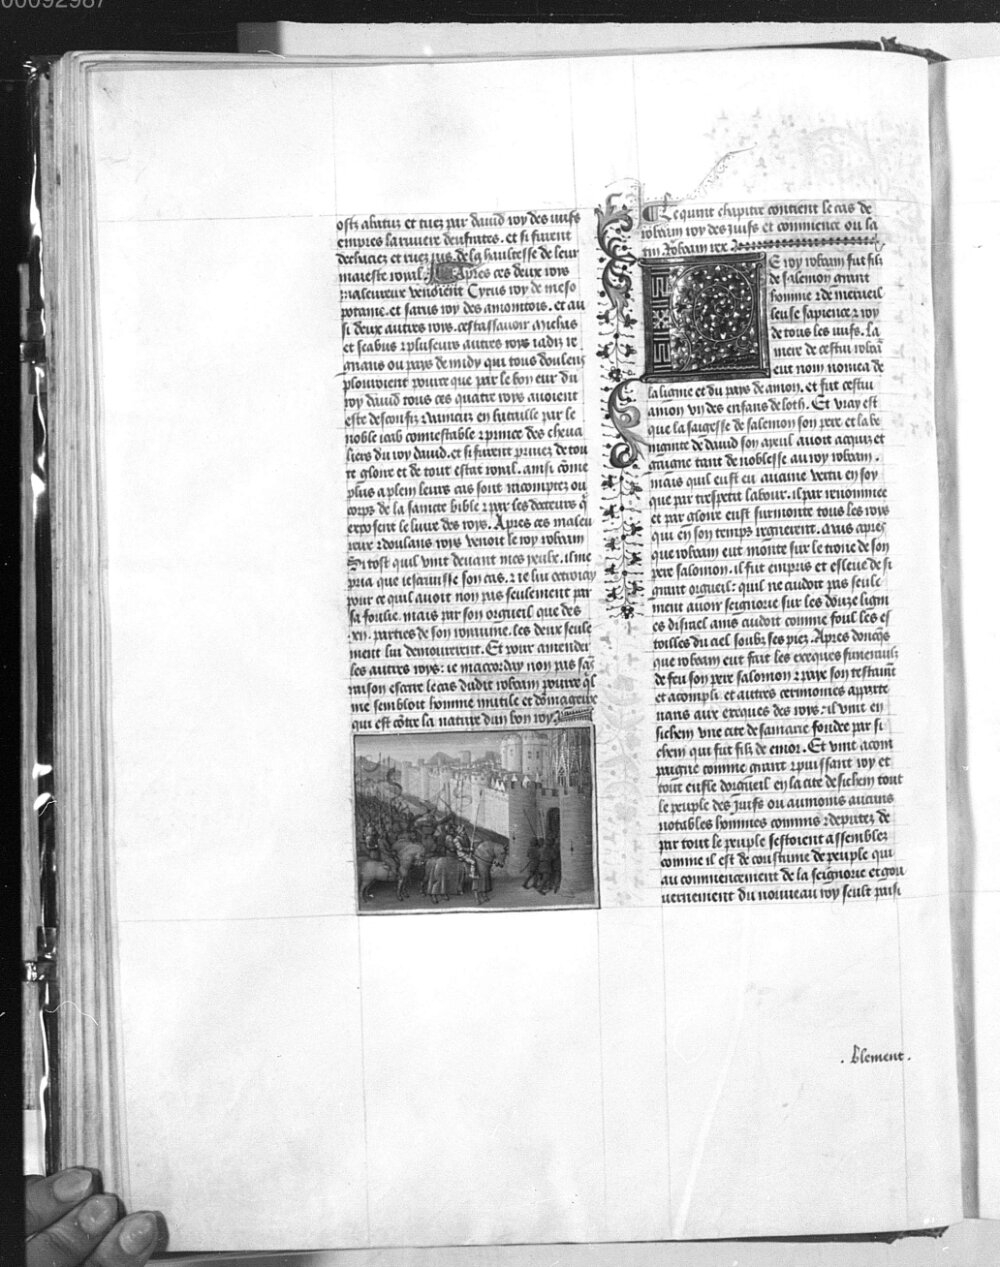 00092987
ostz abatuz et tuez par dauid roy des iuifs
empres la riuiere deufrates. et si furent
dechaciez et ruez ius de la haultesse de leur
maieste roial. Apres ces deux roys
maleureux venoient Cyrus roy de meso
potamie. et satus roy des amonitois. et au
si deux autres roys. cestassauoir
et scabus ⁊ plusieurs autres roys iadiz re
gnans ou pays de midy qui tous doulens
plouroient pource que par le bon eur du
roy dauid tous ces quatre roys auoient
este desconfiz ⁊ vaincuz en bataille par le
noble ioab connestable ⁊ prince des cheua
liers du roy dauid. et si furent priuez de tou
te gloire et de tout estat roial. ainsi cōme
plus a plein leurs cas sont racomptez ou
corps de la saincte bible ⁊ par les docteurs q̄
exposent le liure des roys. Apres ces maleu
reux ⁊ doulans roys venoit le roy roboam
Si tost quil vint deuant mes yeulx. il me
pria que iescriuisse son cas. ⁊ ie lui octroiay
pour ce quil auoit non pas seulement par
sa foulie. mais par son orgueil que des
.xii. parties de son roiaume. les deux seule
ment lui demourerent. Et pour amender
les autres roys: ie maccorday non pas sās
raison escrire le cas dudit roboam pource q̄l
me sembloit homme inutile et dōmageux
qui est cōtre la nature dun bon roy
Le quint chapitre contient le cas de
roboam roy des iuifs et commence ou la
tin. Roboam rex
LE roy roboam fut filz
de salemon grant
homme ⁊ de merueil
leuse sapience ⁊ roy
de tous les iuifs. La
mere de cestui roboā
eut nom noomea de
la lignie et du pays de amon. et fut cestui
amon vn des enfans de loth. Et vray est
que la saigesse de salemon son pere et la be
nignite de dauid son ayeul auoit acquiz et
gaigne tant de noblesse au roy roboam.
mais quil eust eu aucune vertu en soy
que par trespetit labour. il par renommee
et par gloire eust surmonte tous les roys
qui en son temps regnerent. Mais apres
que roboam eut monte sur le trone de son
pere salomon. il fut empris et esleue de si
grant orgueil: quil ne cuidoit pas seule
ment auoir seignorie sur les douze lign
es disrael ains cuidoit comme foul les es
toilles du ciel soubz ses piez. Apres doncq̄s
que roboam eut fait les exeques funeraulx
de feu son pere salomon ⁊ paye son testamēt
et acompli. et autres cerimonies apparte
nans aux exeques des roys: il vint en
sichem vne cite de samarie fondee par si
chem qui fut filz de emor. Et vint acom
paigne comme grant ⁊ puissant roy et
tout enfle dorgueil en la cite de sichem tout
le peuple des iuifs ou aumoins aucuns
notables hommes commis ⁊ deputez de
par tout le peuple sestoient assemblez
comme il est de coustume de peuple qui
au commencement de la seignorie et gou
uernement du nouueau roy seult paisi
. blement .